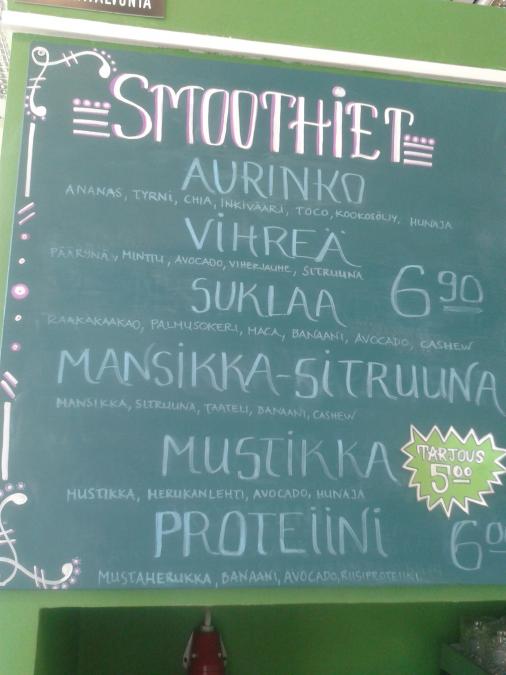 SMOOTHIET
AURINKO
ANANAS, TYRNI, CHIA, INKIVÄÄRI, TOCO, KOOKOSÖLJY, HUNAJA
VIHREÄ
PÄÄRYNÄ, MINTTU, AVOCADO, VIHERJAUHE, SITRUUNA
6 90
SUKLAA
RAAKAKAAKAO, PALMUSOKERI, MACA, BANAANI, AVOCADO, CASHEW
MANSIKKA-SITRUUNA
MANSIKKA, SITRUUNA, TAATELI, BANAANI, CASHEW
MUSTIKKA
TARJOUS
5 00
MUSTIKKA, HERUKANLEHTI, AVOCADO, HUNAJA
PROTEIINI
6 00
MUSTAHERUKKA, BANAANI, AVOCADO, RIISIPROTEIINI